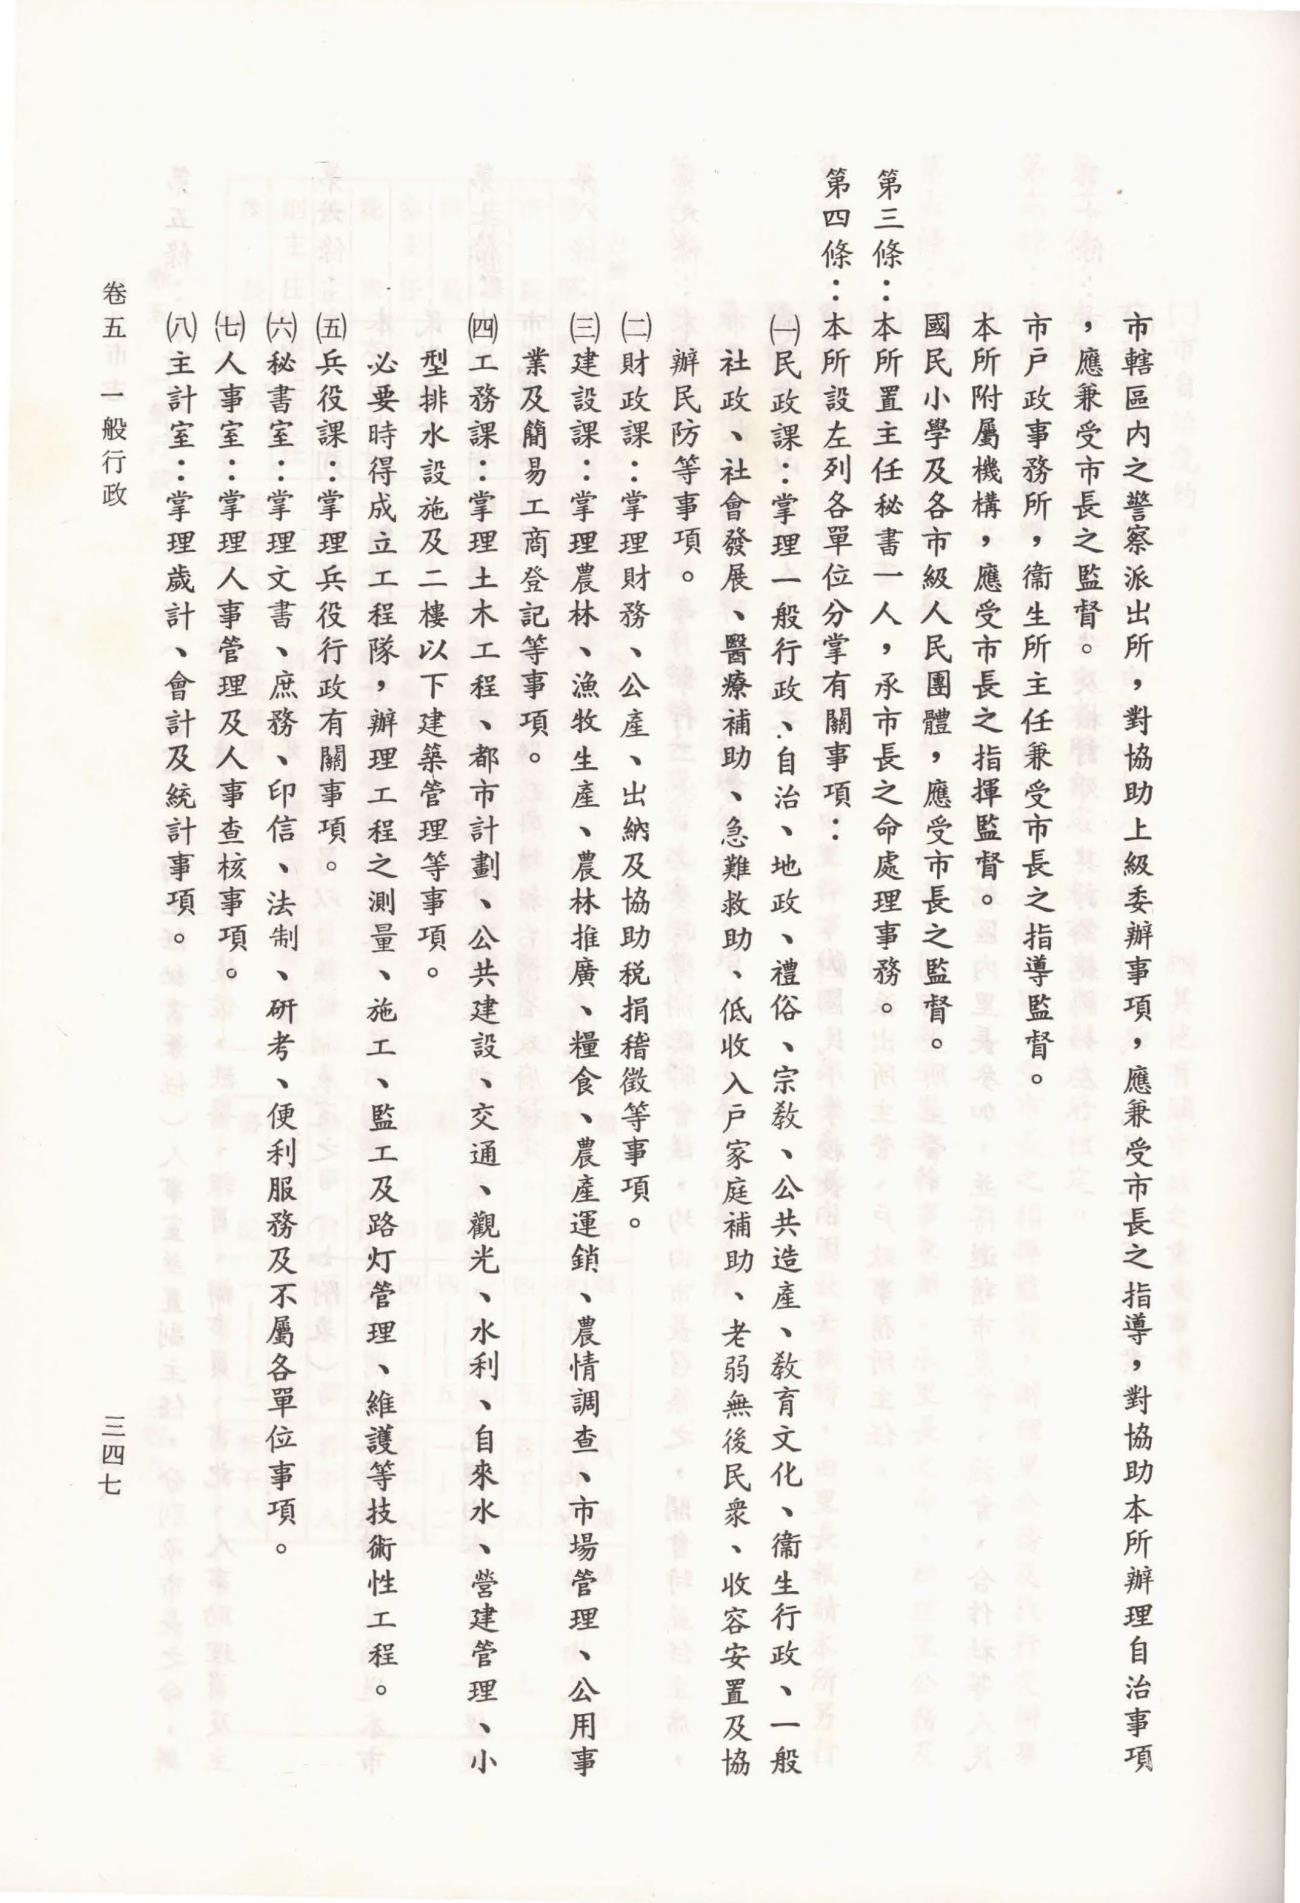 市轄區內之警察派出所，對協助上級委辦事項，應兼受市長之指導，對協助本所辦理自治事項
，應兼受市長之監督。
市戶政事務所，衞生所主任兼受市長之指導監督。
本所附屬機構，應受市長之指揮監督。
國民小學及各市級人民團體，應受市長之監督。
第三條：本所置主任秘書一人，承市長之命處理事務。
第四條：本所設左列各單位分掌有關事項：
㈠民政課：掌理一般行政、自治、地政、禮俗、宗教、公共造產、教育文化、衞生行政、一般
社政、社會發展、醫療補助、急難救助、低收入戶家庭補助、老弱無後民衆、收容安置及協
辦民防等事項。
㈡財政課：掌理財務、公產、出納及協助稅捐稽徵等事項。
㈢建設課：掌理農林、漁牧生產、農林推廣、糧食、農產運銷、農情調查、市場管理、公用事
業及簡易工商登記等事項。
㈣工務課：掌理土木工程、都市計劃、公共建設、交通、觀光、水利、自來水、營建管理、小
型排水設施及二樓以下建築管理等事項。
必要時得成立工程隊，辦理工程之測量、施工、監工及路灯管理、維護等技術性工程。
㈤兵役課：掌理兵役行政有關事項。
㈥秘書室：掌理文書、庶務、印信、法制、研考、便利服務及不屬各單位事項。
㈦人事室：掌理人事管理及人事查核事項。
㈧主計室：掌理歲計、會計及統計事項。
卷五 市志一般行政
三四七